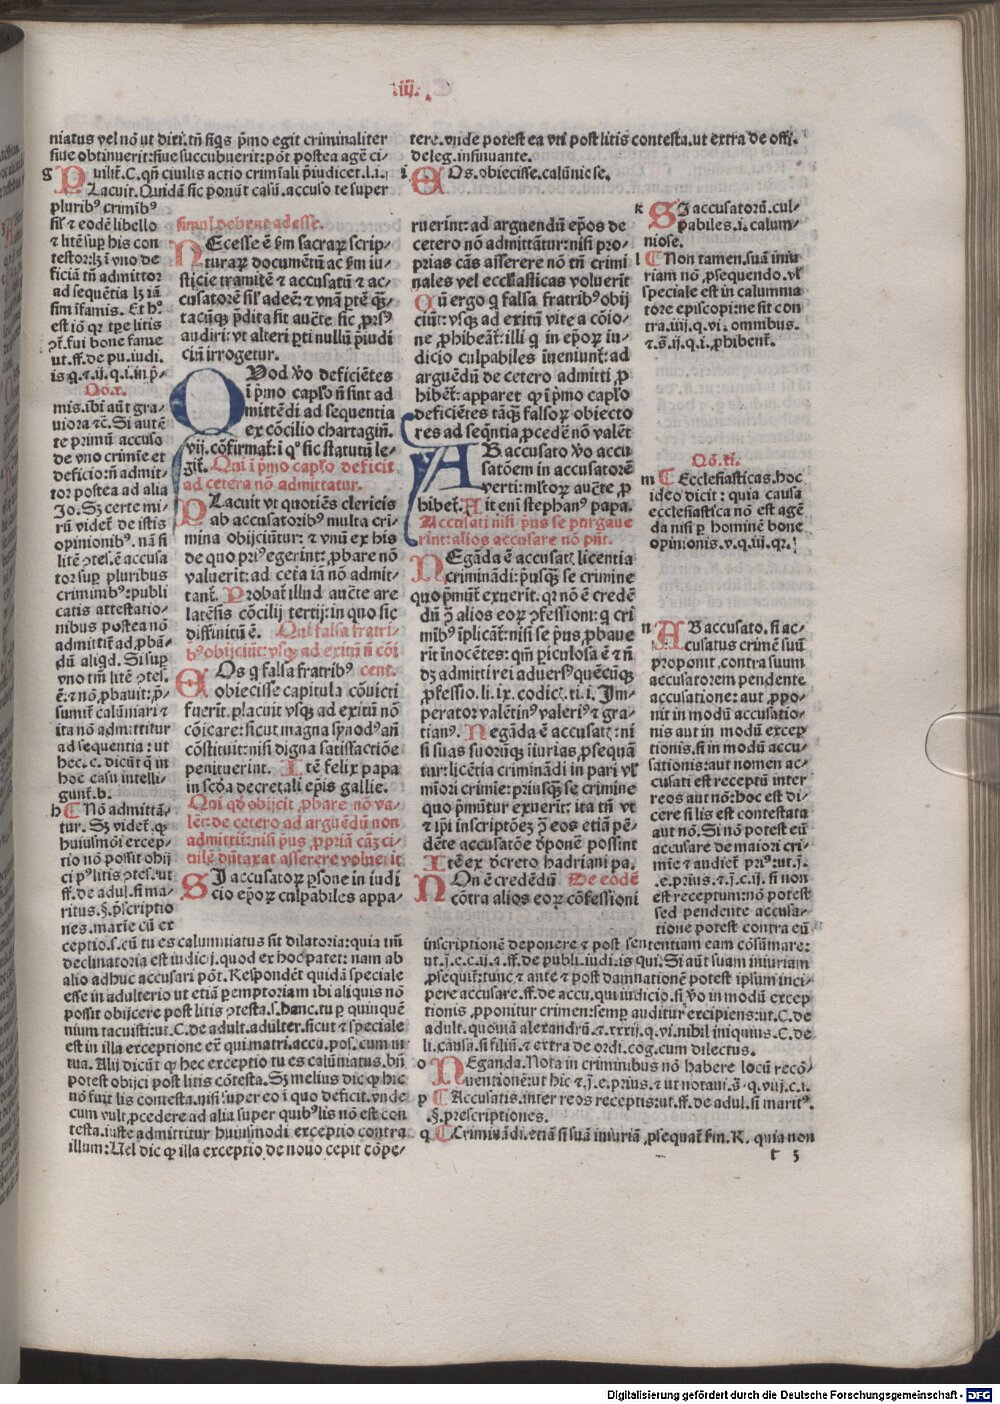 .iij.
niatus vel nō ut dixi.tñ siqs p̄mo egit criminaliter
siue obtinuerit:siue succubuerit:pōt postea agē ci-
uilit̄.C.qñ ciuilis actio crim̄ali p̄iudicet.l.i.
g Placuit.Quidā sic ponūt casū.accuso te super
pluribꝰ crimībꝰ
sił ⁊ eodē libello
⁊ litē sup his con
testor:lꝫ ī vno de
ficiā tñ admittor
ad sequētia lꝫ iā
sim īfamis. Et hͨ
est iō qꝛ tꝑe litis
ꝯt̄.fui bone fame
ut.ff.de pu.iudi.
is q̄.⁊.ij.q.i.in p̄-
mis.ibi aūt gra-
uiora ⁊c̄. Si autē
te primū accuso
de vno crimīe et
deficio:ñ admit-
tor postea ad alia
Jo.Sꝫ certe mi-
rū videt̄ de istis
opinionibꝰ. nā si
litē ꝯtes.ē accusa
tor sup pluribus
criminibꝰ:publi
catis attestatio-
nibus postea nō
admittit̄ ad ꝓbā-
dū aliqd. Si sup
vno tm̄ litē ꝯtes.
ē:⁊ nō ꝓbauit:p̄-
sumit̄ calūniari ⁊
ita nō admittitur
ad sequentia: ut
hec.c. dicūt q̄ in
hoc casu intelli-
gunt̄.b.
h Nō admittā-
tur. Sꝫ videt̄ qꝙ
huiusmōi excep-
tio nō possit obij
ci pꝰ litis ꝯtes.ut
ff.de adul.si ma-
ritus.§.p̄scriptio
nes.marie cū ex
ceptio.s.cū tu es calumniatus sit dilatoria:quia tm̄
declinatoria est iudicij.quod ex hoc patet: nam ab
alio adhuc accusari pōt. Respondēt quidā speciale
esse in adulterio ut etiā ꝑemptoriam ibi aliquis nō
possit obijcere post litis ꝯtesta.s.hanc.tu ꝑ quinquen
nium tacuisti:ut.C.de adult.adulter.sicut ⁊ speciale
est in illa exceptione eē qui.matri.accu.pos.cum in
tua. Alij dicūt qꝙ hec exceptio tu es calūniatus.bn̄
potest obijci post litis cōtesta. Sꝫ melius dic qꝙ hic
nō fuit lis contesta.nisi super eo ī quo deficit.vnde
cum vult ꝓcedere ad alia super quibꝰ lis nō est con
testa.iuste admittitur huiusmodi exceptio contra
illum:Uel dic qꝙ illa exceptio de nouo cepit cōpe-
simul debent adesse.
Necesse ē s̄m sacraꝝ scrip-
turaꝝ documētū ac s̄m iu-
sticie tramitē ⁊ accusatū ⁊ ac-
cusatorē sił adeē:⁊ vnā ꝑtē q̄ꝫ-
tacūqꝫ p̄dita sit auc̄te sic ꝓrsꝰ
audiri: vt alteri ꝑti nullū p̄iudi
ciū irrogetur. Qō.x.
Quod v̄o deficiētes
i p̄mo capło ñ sint ad
mittēdi ad sequentia
ex cōcilio chartagiñ.
vij. cōfirmat̄: i qͦ sic statutū le-
git̄. Qui i p̄mo capło deficit
ad cetera nō admittatur.
Placuit vt quotiēs clericis
ab accusatoribꝰ multa cri-
mina obijciūtur: ⁊ vnū ex his
de quo priꝰ egerint: ꝓbare nō
valuerit: ad cet̄a iā nō admit-
tant̄. Probat̄ illud auc̄te are
latēsis cōcilij tertij: in quo sic
diffinitū ē. Qui falsa fratri-
bꝰ obijciūt: vsqꝫ ad exitū ñ cōi
cent.
Eos q falsa fratribꝰ
obiecisse capitula cōuicti
fuerit. placuit vsqꝫ ad exitū nō
cōicare: sicut magna synodꝰ añ
cōstituit: nisi digna satisfactiōe
penituerint. Itē felix papa
in scda decretali epis gallie.
Qui qd obijcit ꝓbare nō va-
lēt: de cetero ad arguēdū non
admittit̄: nisi p̄us ꝓpriā cāꝫ ci-
uilē dūtaxat asserere voluerit
Si accusatoꝝ ꝑsone in iudi
cio epoꝝ culpabiles appa-
tere.vnde potest ea vti post litis contesta.ut extra de offi.
deleg.insinuante.
i Eos.obiecisse.calūniose.
ruerint: ad arguendū epos de
cetero nō admittātur: nisi pro-
prias cās asserere nō tñ crimi
nales vel ecclesiasticas voluerit
Qū ergo q falsa fratribꝰ obij
ciūt: vsqꝫ ad exitū vite a cōio-
ne ꝓhibeāt̄: illi q in epoꝝ iu-
dicio culpabiles ineniunt̄: ad
arguēdū de cetero admitti ꝓ
hibent̄: apparet qꝙ i p̄mo capło
deficiētes tāqꝫ falsoꝝ obiecto
res ad seqñtia ꝓcedē nō valēt
Qō.xi.
Ab accusato v̄o accu
satōem in accusatorē
verti: młtoꝝ auc̄te ꝓ
hibet̄. Ait eni stephanꝰ papa.
Accusati nisi p̄us se purgaue
rint: alios accusare nō pn̄t.
Negāda ē accusat̄ licentia
criminādi: p̄usqꝫ se crimine
quo p̄mūt̄ exuerit. qꝛ nō ē credē
dū ꝯ̄ alios eoꝝ ꝯfessioni: q cri
mībꝰ īplicāt̄: nisi se p̄us ꝓbaue
rit inocētes: qm̄ ꝑiculosa ē ⁊ ñ
dꝫ admitti rei aduersꝰ quēcūqꝫ
ꝓfessio. li. ix. codic̄. ti. i. Im-
perator valētinꝰ valeriꝰ ⁊ gra-
tianꝰ. Negāda ē accusat̄: ni
si suas suorūqꝫ iiurias ꝓsequā
tur: licētia criminādi in pari vł
miori crimie: priusqꝫ se crimine
quo p̄mūtur exuerit: ita tñ vt
⁊ ipi inscriptōeꝫ ꝯ̄ eos etiā pē-
dēte accusatōe dponē possint
Itē ex dcreto hadriani pa.
Non ē credēdū De eodē
cōtra alios eoꝝ cōfessioni
k Si accusatorū.cul-
pabiles.i.calum-
niose.
l Non tamen.suā iniu
riam nō ꝓsequendo.vł
speciale est in calumnia
tore episcopi:ne sit con
tra.iiij.q.vi.omnibus.
⁊.s.ij.q.i.ꝓhibent̄.
m Ecclesiasticas.hoc
ideo dicit : quia causa
ecclesiastica nō est agē
da nisi ꝑ hominē bone
opinionis.v.q.iij.qꝛ.
n Ab accusato.si ac-
cusatus crimē suū
proponit contra suum
accusatorem pendente
accusatione: aut ꝓpo-
nit in modū accusatio-
nis aut in modū excep
tionis.si in modū accu-
sationis:aut nomen ac-
cusati est receptū inter
reos aut nō:hoc est di-
cere si lis est contestata
aut nō. Si nō potest eū
accusare de maiori cri-
mīe ⁊ audiet̄ priꝰ:ut.j.
.e.prius.⁊.j.c.ij.si non
est receptum:nō potest
sed pendente accusa-
tione potest contra eū
inscriptionē deponere ⁊ post sententiam eam cōsūmare:
ut.j.e.c.ij.⁊.ff.de publi.iudi.is qui. Si aūt suam iniuriam
ꝓsequit̄:tunc ⁊ ante ⁊ post damnationē potest ipsum inci-
pere accusare.ff.de accu.qui iudicio.si v̄o in modū excep
tionis ꝓponitur crimen:semꝑ auditur excipiens:ut.C.de
adult.quoniā alexandrū.⁊.xxxij.q.vi.nihil iniquius.C.de
li.causa.si filiū.⁊ extra de ordi.cog.cum dilectus.
o Neganda. Nota in criminibus nō habere locū recō-
uentionē:ut hic ⁊.j.e.prius.⁊ ut notaui.3.q.viij.c.i.
p Accusatis.inter reos receptis:ut.ff.de adul.si maritꝰ.
.§.prescriptiones.
q Crimināḋi.etiā si suā iniuriā ꝓsequat̄ s̄m.R. quia non
r 5
Digitalisierung gefördert durch die Deutsche Forschungsgemeinschaft - DFG